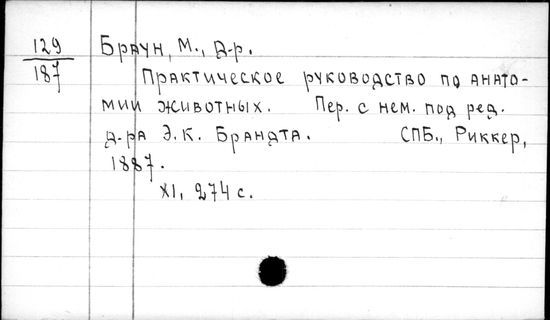 129
187
Браун, М., д-р.
Практическое руководство по анато-
мии животных. Пер. с нем. под ред.
д-ра Э.К. Брандта. СПБ., Риккер,
1887.
XI, 274 с.